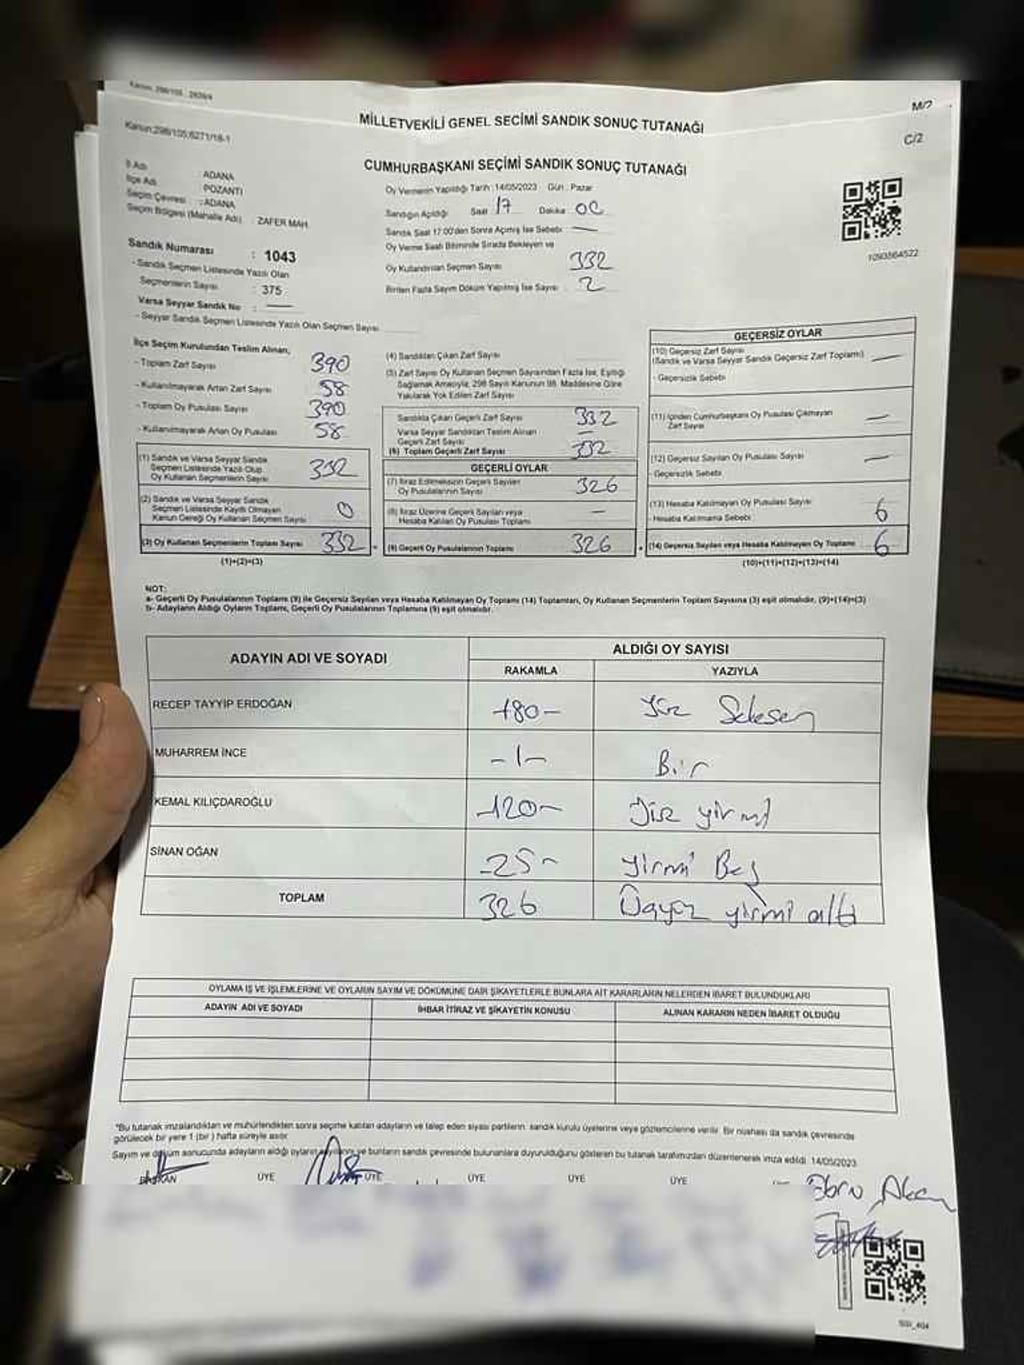 Kanun:298/105;6271/18-1
M/2
MİLLETVEKİLİ GENEL SEÇİMİ SANDIK SONUÇ TUTANAĞI
C/2
CUMHURBAŞKANI SEÇİMİ SANDIK SONUÇ TUTANAĞI
İl Adı : ADANA
İlçe Adı : POZANTI
Seçim Çevresi : ADANA
Seçim Bölgesi (Mahalle Adı) : ZAFER MAH.
Sandık Numarası : 1043
- Sandık Seçmen Listesinde Yazılı Olan
Seçmenlerin Sayısı : 375
Varsa Seyyar Sandık No : —
- Seyyar Sandık Seçmen Listesinde Yazılı Olan Seçmen Sayısı
Oy Vermenin Yapıldığı Tarih :14/05/2023 Gün : Pazar
Sandığın Açıldığı Saat 17 Dakika 00
Sandık Saat 17:00'den Sonra Açılmış İse Sebebi : —
Oy Verme Saati Bitiminde Sırada Bekleyen ve
Oy Kullandırılan Seçmen Sayısı : 332
Birden Fazla Sayım Döküm Yapılmış İse Sayısı : 2
1093864522
İlçe Seçim Kurulundan Teslim Alınan;
- Toplam Zarf Sayısı 390
- Kullanılmayarak Artan Zarf Sayısı 58
- Toplam Oy Pusulası Sayısı 390
- Kullanılmayarak Artan Oy Pusulası 58
(1) Sandık ve Varsa Seyyar Sandık
Seçmen Listesinde Yazılı Olup
Oy Kullanan Seçmenlerin Sayısı 332
(2) Sandık ve Varsa Seyyar Sandık
Seçmen Listesinde Kayıtlı Olmayan
Kanun Gereği Oy Kullanan Seçmen Sayısı 0
(3) Oy Kullanan Seçmenlerin Toplam Sayısı 332
(1)+(2)=(3)
(4) Sandıktan Çıkan Zarf Sayısı
(5) Zarf Sayısı Oy Kullanan Seçmen Sayısından Fazla İse, Eşitliği
Sağlamak Amacıyla, 298 Sayılı Kanunun 98. Maddesine Göre
Yakılarak Yok Edilen Zarf Sayısı
Sandıkta Çıkan Geçerli Zarf Sayısı 332
Varsa Seyyar Sandıktan Teslim Alınan
Geçerli Zarf Sayısı —
(6) Toplam Geçerli Zarf Sayısı 332
GEÇERLİ OYLAR
(7) İtiraz Edilmeksizin Geçerli Sayılan
Oy Pusulalarının Sayısı 326
(8) İtiraz Üzerine Geçerli Sayılan veya
Hesaba Katılan Oy Pusulası Toplamı —
(9) Geçerli Oy Pusulalarının Toplamı 326
GEÇERSİZ OYLAR
(10) Geçersiz Zarf Sayısı
(Sandık ve Varsa Seyyar Sandık Geçersiz Zarf Toplamı) —
- Geçersizlik Sebebi
(11) İçinden Cumhurbaşkanı Oy Pusulası Çıkmayan
Zarf Sayısı —
(12) Geçersiz Sayılan Oy Pusulası Sayısı —
- Geçersizlik Sebebi
(13) Hesaba Katılmayan Oy Pusulası Sayısı
- Hesaba Katılmama Sebebi 6
(14) Geçersiz Sayılan veya Hesaba Katılmayan Oy Toplamı 6
(10)+(11)+(12)+(13)=(14)
NOT:
a- Geçerli Oy Pusulalarının Toplamı (9) ile Geçersiz Sayılan veya Hesaba Katılmayan Oy Toplamı (14) Toplamları, Oy Kullanan Seçmenlerin Toplam Sayısına (3) eşit olmalıdır. (9)+(14)=(3)
b- Adayların Aldığı Oyların Toplamı, Geçerli Oy Pusulalarının Toplamına (9) eşit olmalıdır.
ADAYIN ADI VE SOYADI
ALDIĞI OY SAYISI
RAKAMLA YAZIYLA
RECEP TAYYİP ERDOĞAN -180- Yüz Seksen
MUHARREM İNCE -1- Bir
KEMAL KILIÇDAROĞLU -120- Yüz yirmi
SİNAN OĞAN -25- yirmi Beş
TOPLAM 326 Üçyüz yirmi altı
OYLAMA İŞ VE İŞLEMLERİNE VE OYLARIN SAYIM VE DÖKÜMÜNE DAİR ŞİKAYETLERLE BUNLARA AİT KARARLARIN NELERDEN İBARET BULUNDUKLARI
ADAYIN ADI VE SOYADI İHBAR İTİRAZ VE ŞİKAYETİN KONUSU ALINAN KARARIN NEDEN İBARET OLDUĞU
*Bu tutanak imzalandıktan ve mühürlendikten sonra seçime katılan adayların ve talep eden siyasi partilerin sandık kurulu üyelerine veya gözlemcilerine verilir. Bir nüshası da sandık çevresinde
görülecek bir yere 1 (bir) hafta süreyle asılır.
Sayım ve döküm sonucunda adayların aldığı oyların ve bunların sandık çevresinde bulunanlara duyurulduğunu gösteren bu tutanak tarafımızdan düzenlenerek imza edildi. 14/05/2023
BAŞKAN ÜYE ÜYE ÜYE ÜYE ÜYE